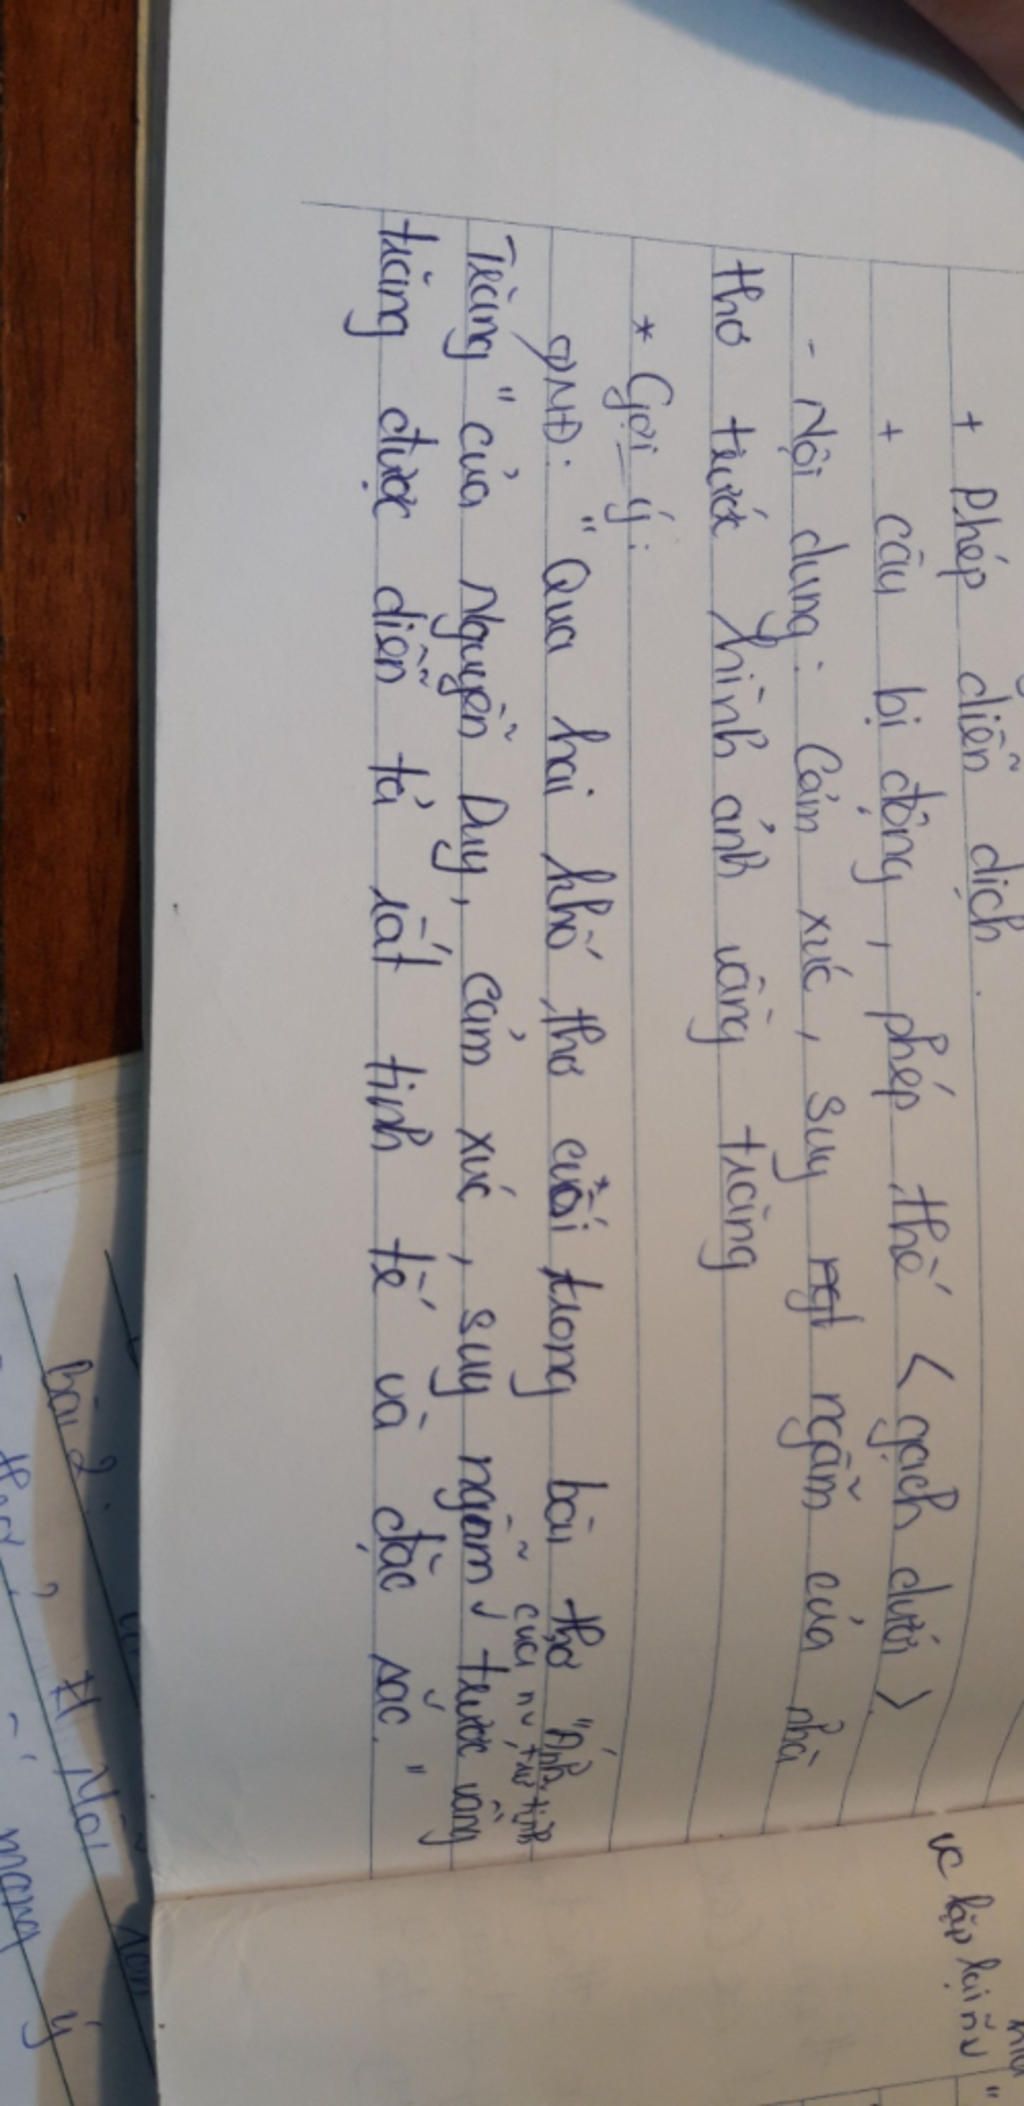 + Phép diễn dịch.
+ câu bị động, phép thế < gạch dưới >
- Nội dung: Cảm xúc, suy ngẫm của nhà
thơ trước hình ảnh vầng trăng
* Gợi ý:
"Qua hai khổ thơ cuối trong bài thơ "Ánh
Trăng" của Nguyễn Duy, cảm xúc, suy ngẫm trước vầng
của nv trữ tình
trăng được diễn tả rất tinh tế và đặc sắc."
lặp lại
Bài 2
ý